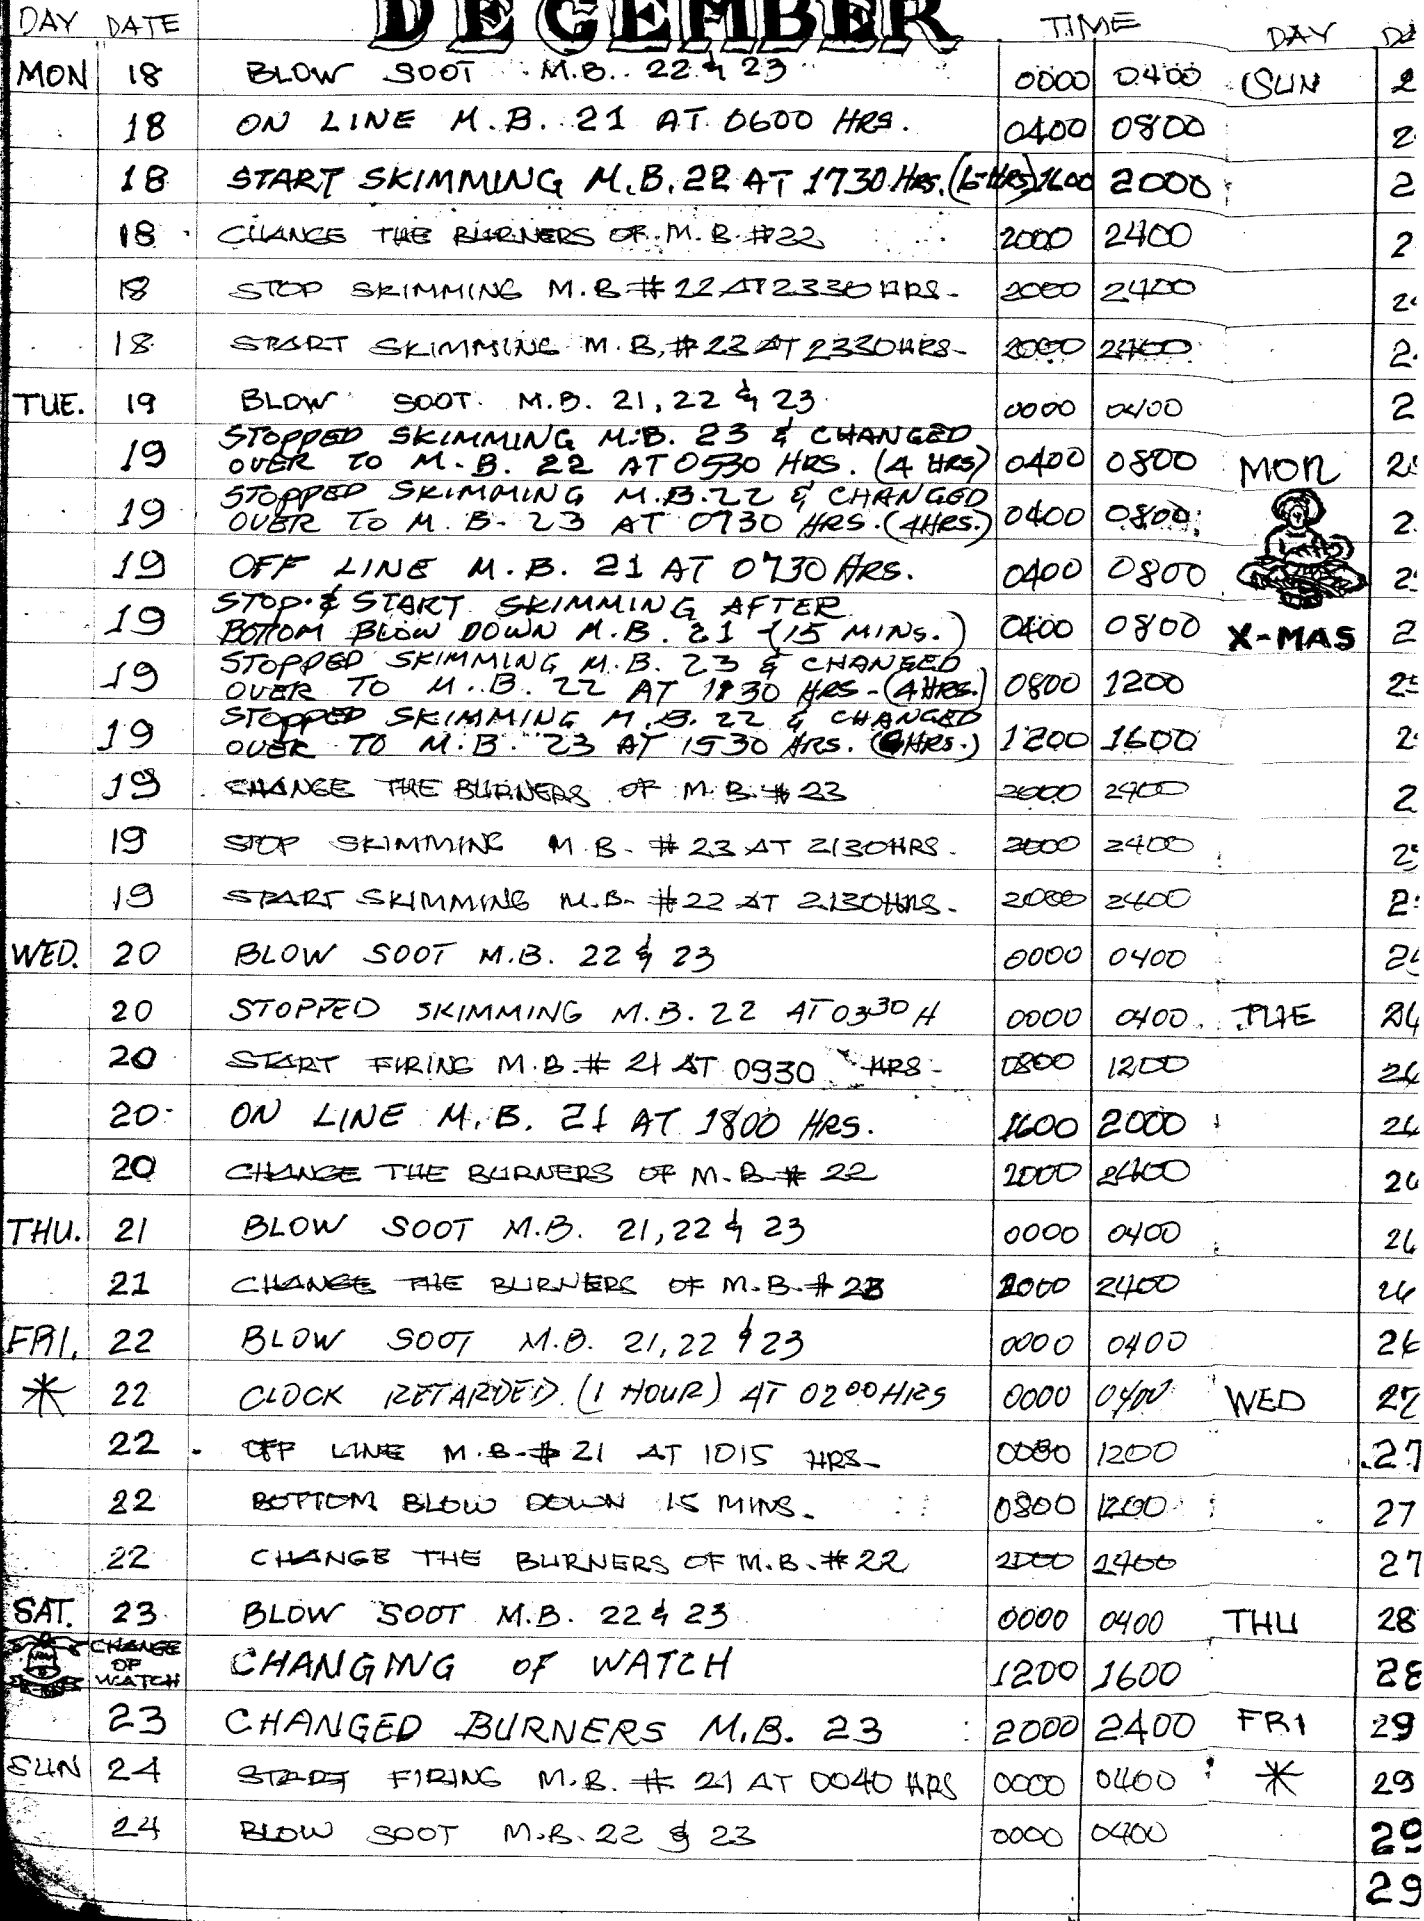 DECEMBER
DAY DATE TIME DAY
MON 18 BLOW SOOT M.B. 22 & 23 0000 0400 SUN 2
18 ON LINE M.B. 21 AT 0600 HRS. 0400 0800 2
18 START SKIMMING M.B. 22 AT 1730 HRS. ( HRS) 1600 2000 2
18 CHANGE THE BURNERS OF M.B. #22 2000 2400 2
18 STOP SKIMMING M.B # 22 AT 2330 HRS- 2000 2400 2
18 START SKIMMING M.B. # 23 AT 2330 HRS- 2000 2400 2
TUE. 19 BLOW SOOT M.B. 21, 22 & 23 0000 0400 2
STOPPED SKIMMING M.B. 23 & CHANGED
19 OVER TO M.B. 22 AT 0530 HRS. (4 HRS) 0400 0800 MON 2
STOPPED SKIMMING M.B. 22 & CHANGED
19 OVER TO M.B- 23 AT 0730 HRS. (4HRS.) 0400 0800 2
19 OFF LINE M.B. 21 AT 0730 HRS. 0400 0800 2
STOP & START SKIMMING AFTER
19 BOTTOM BLOW DOWN M.B. 21 (15 MINS.) 0400 0800 X-MAS 2
STOPPED SKIMMING M.B. 23 & CHANGED
19 OVER TO M.B. 22 AT 1130 HRS- (4HRS.) 0800 1200 2
STOPPED SKIMMING M.B. 22 & CHANGED
19 OVER TO M.B. 23 AT 1530 HRS. (6HRS.) 1200 1600 2
19 CHANGE THE BURNERS OF M.B. # 23 2000 2400 2
19 STOP SKIMMING M.B- # 23 AT 2130HRS- 2000 2400 2
19 START SKIMMING M.B- #22 AT 2130HRS- 2000 2400 2
WED. 20 BLOW SOOT M.B. 22 & 23 0000 0400 2
20 STOPPED SKIMMING M.B. 22 AT 0330 H 0000 0400 TUE 26
20 START FIRING M.B. # 21 AT 0930 HRS- 0800 1200 26
20 ON LINE M.B. 21 AT 1800 HRS. 1600 2000 26
20 CHANGE THE BURNERS OF M.B # 22 2000 2400 26
THU. 21 BLOW SOOT M.B. 21, 22 & 23 0000 0400 26
21 CHANGE THE BURNERS OF M.B. # 23 2000 2400 26
FRI. 22 BLOW SOOT M.B. 21, 22 & 23 0000 0400 26
* 22 CLOCK RETARDED (1 HOUR) AT 0200 HRS 0000 0400 WED 27
22 OFF LINE M.B-# 21 AT 1015 HRS- 0080 1200 27
22 BOTTOM BLOW DOWN 15 MINS. 0800 1200 27
22 CHANGE THE BURNERS OF M.B. #22 2000 2400 27
SAT. 23 BLOW SOOT M.B. 22 & 23 0000 0400 THU 28
CHANGE OF WATCH CHANGING OF WATCH 1200 1600 28
23 CHANGED BURNERS M.B. 23 2000 2400 FRI 29
SUN 24 START FIRING M.B. # 21 AT 0040 HRS 0000 0400 * 29
24 BLOW SOOT M.B. 22 & 23 0000 0400 29
29